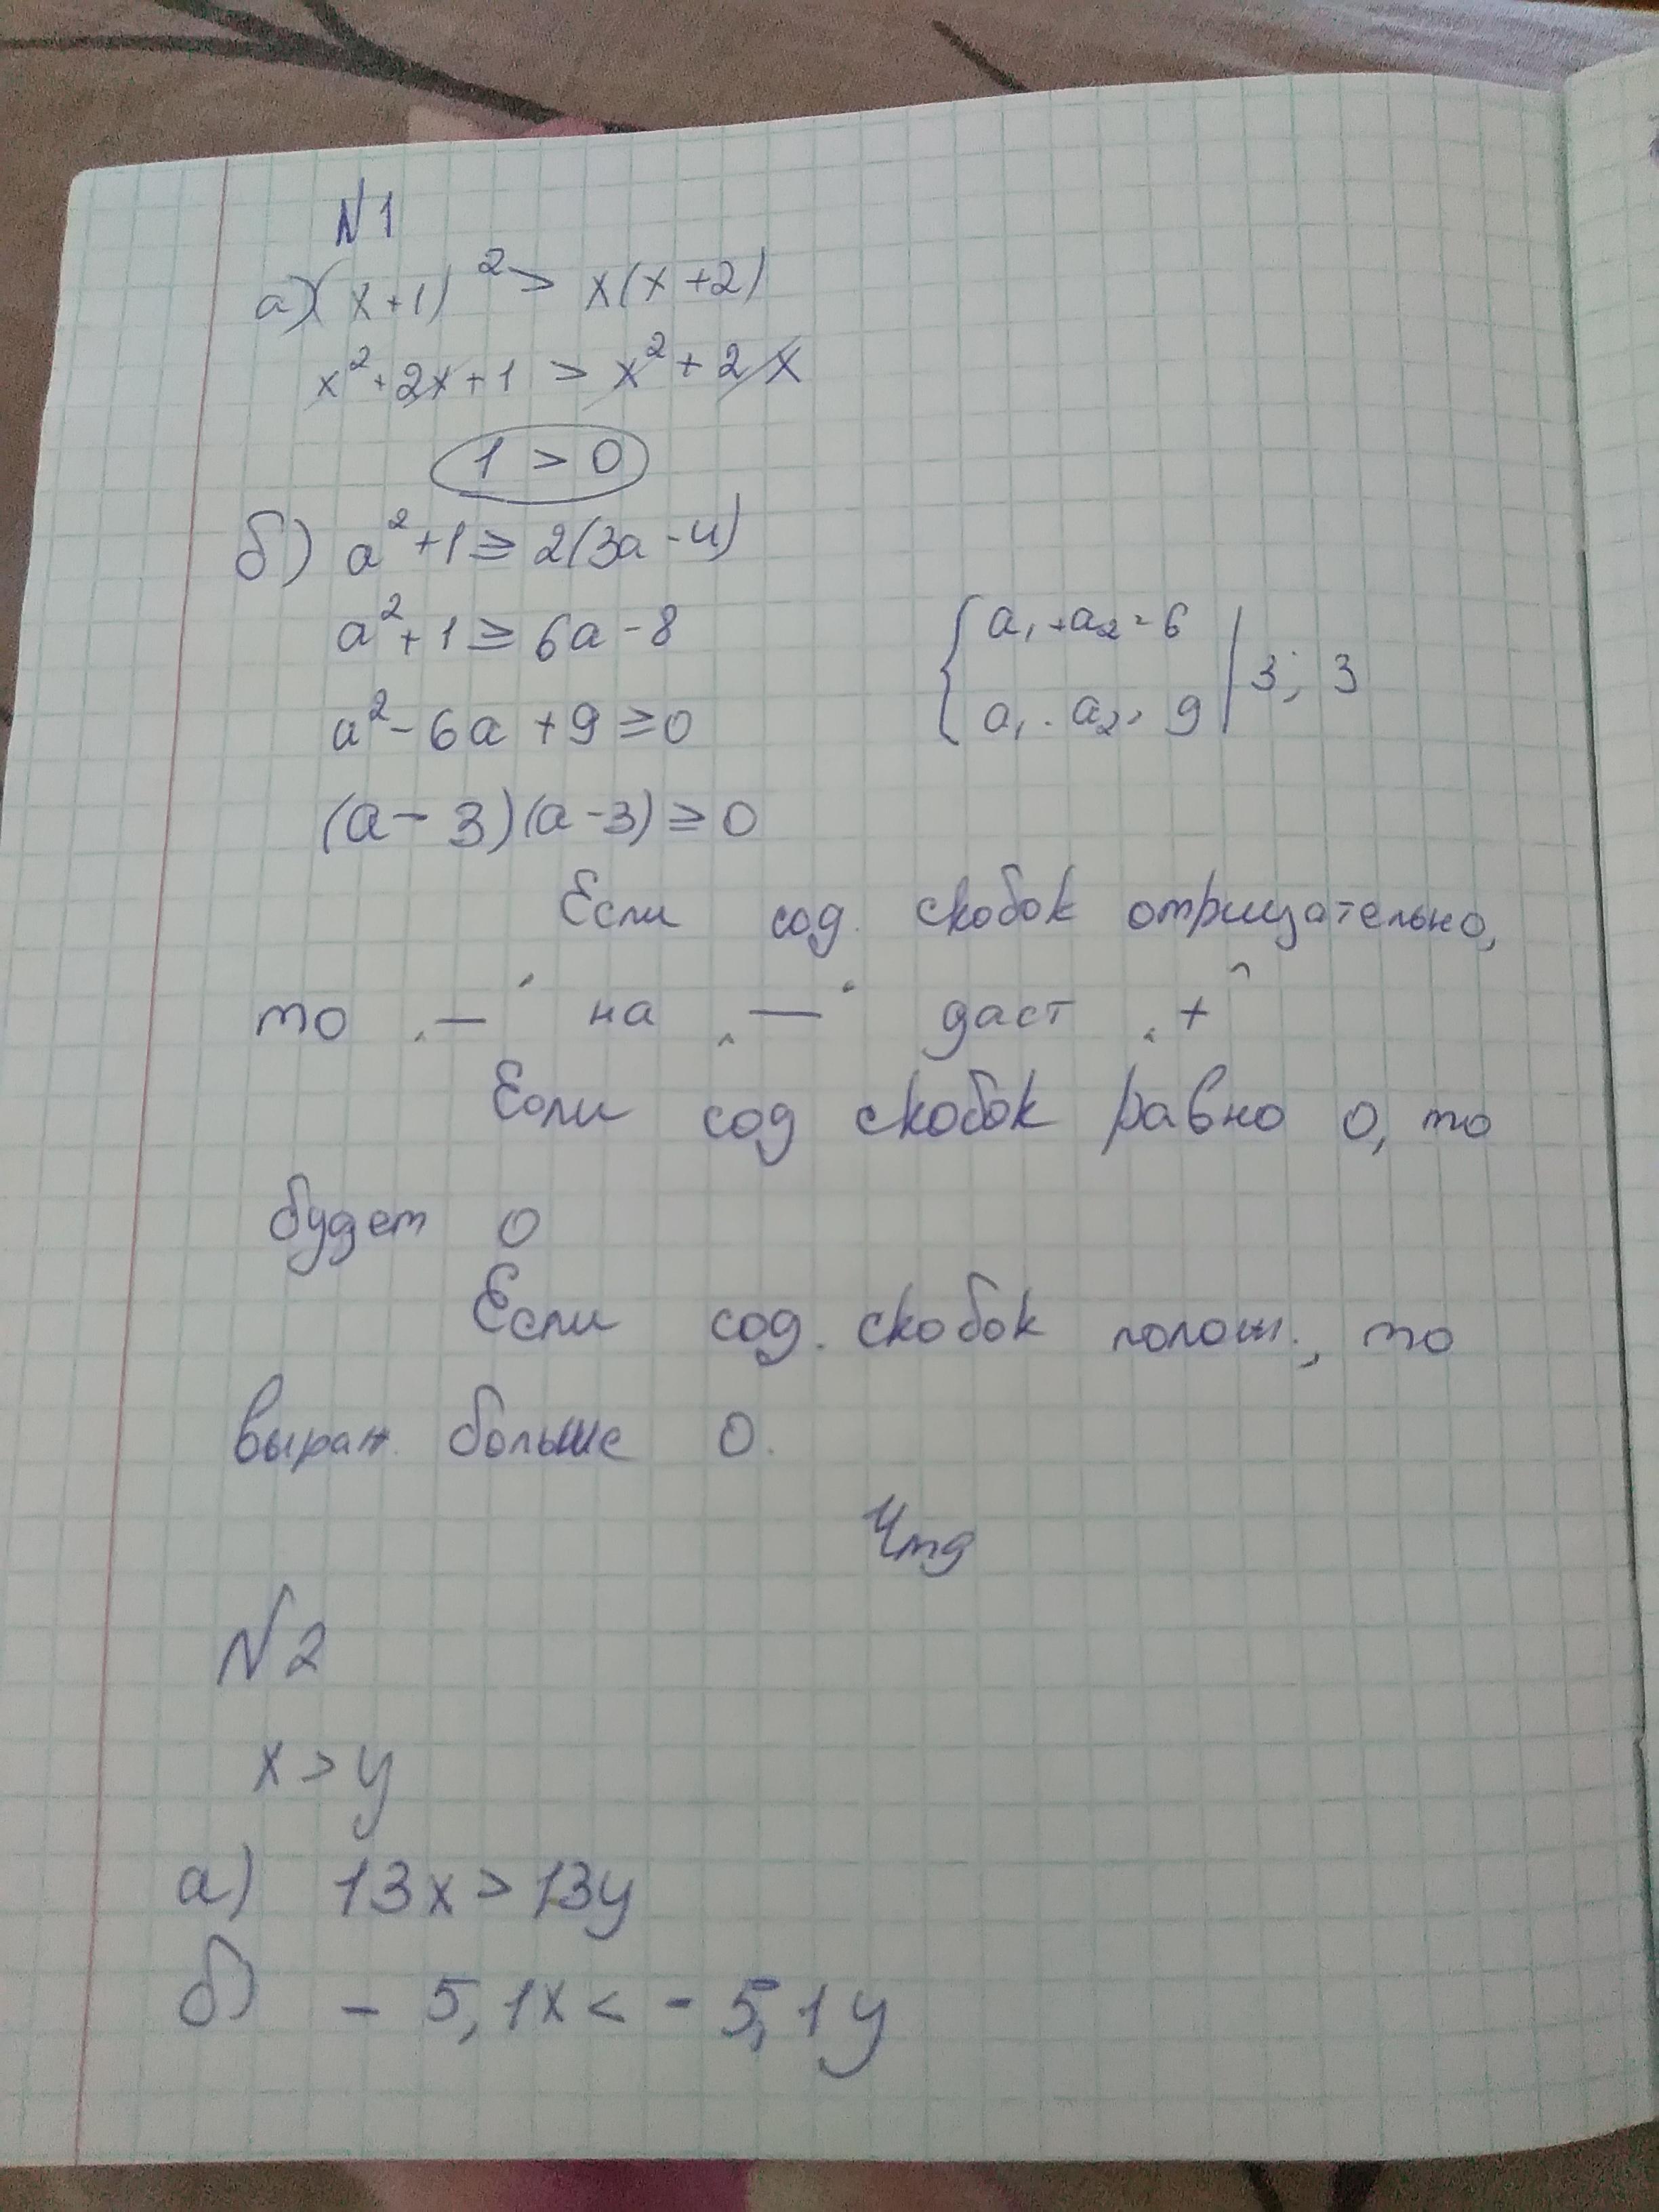 N1
а) (x+1)² > x(x+2)
x²+2x+1 > x²+2x
1 > 0
б) a²+1 ≥ 2(3a-4)
a²+1 ≥ 6a-8
a²-6a+9 ≥ 0
(a-3)(a-3) ≥ 0
{ a₁+a₂=6
a₁·a₂=9 | 3; 3
Если сод. скобок отрицательно,
то „—“ на „—“ даст „+“
Если сод скобок равно 0, то
будет 0
Если сод. скобок полож., то
выраж. больше 0.
Чтд
N2
x > y
а) 13x > 13y
б) - 5,1x < - 5,1y